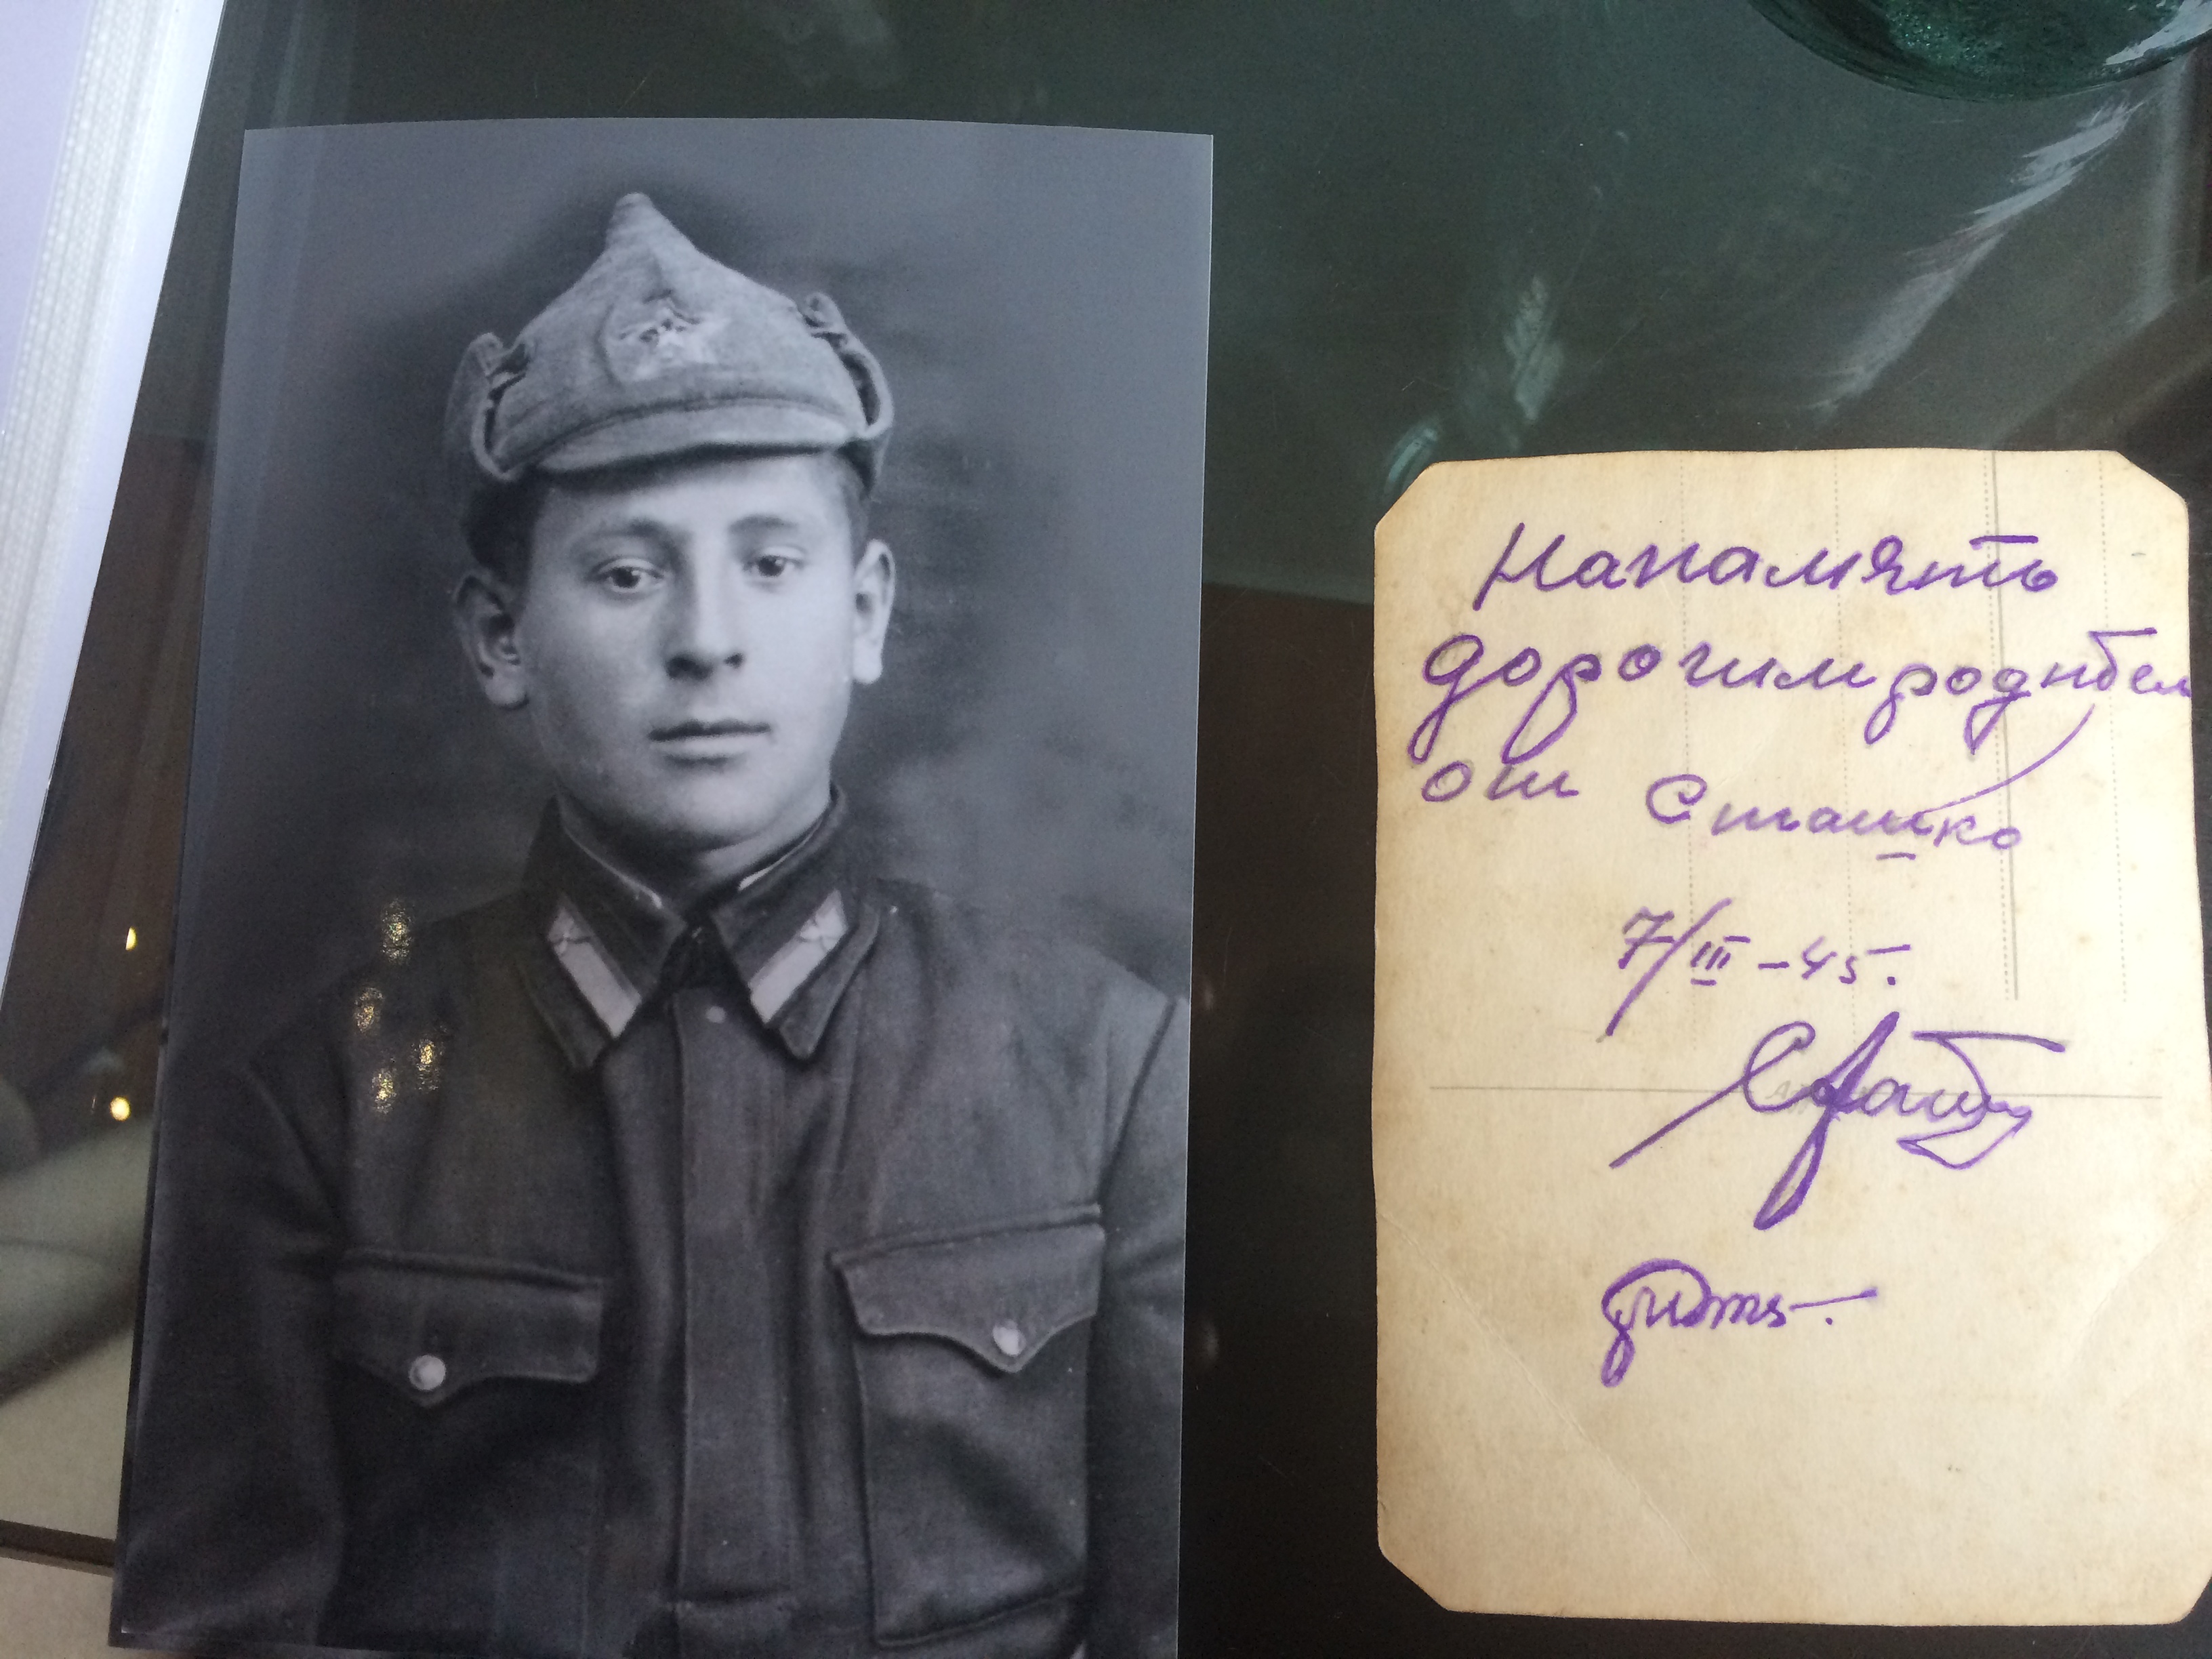 Напамять
дорогим родител
от Сташко
7/III-45.